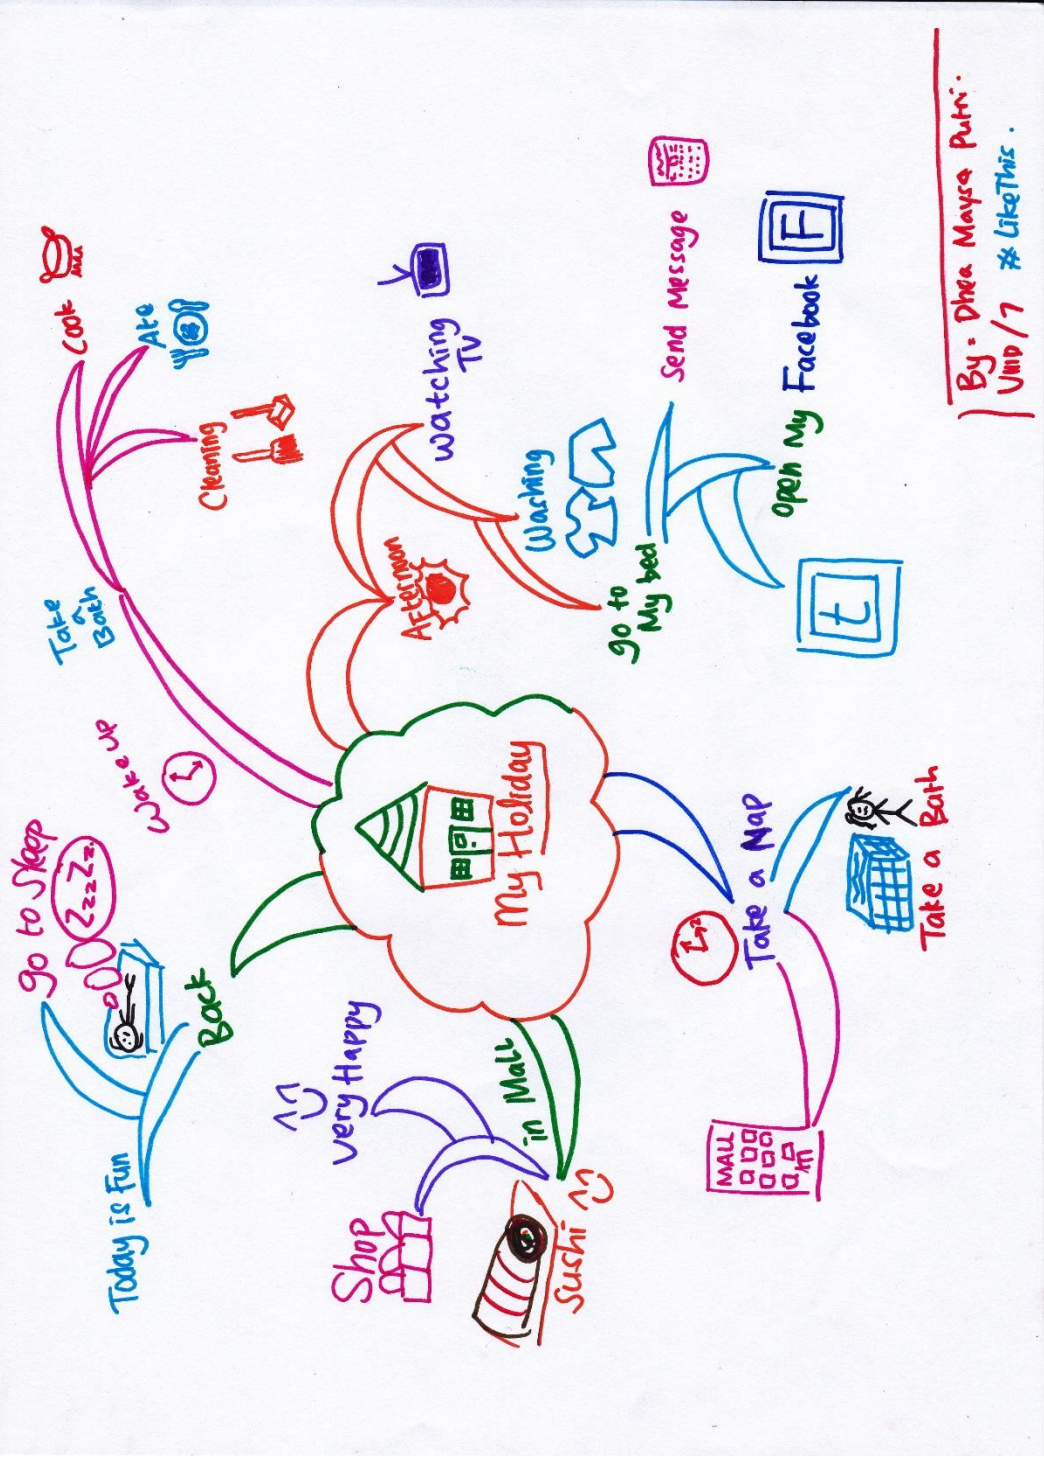 My Holiday
Wake up
Take
a
Bath
Cook
Ate
Cleaning
Afternoon
Watching
TV
Washing
go to
My bed
Send Message
Open My Facebook
F
t
Take a Nap
Take a Bath
MALL
in Mall
Sushi
Shop
Very Happy
Back
go to Sleep
ZzzZz.
Today is Fun
By = Dhea Maysa Putri.
VIIID/7 # LikeThis.